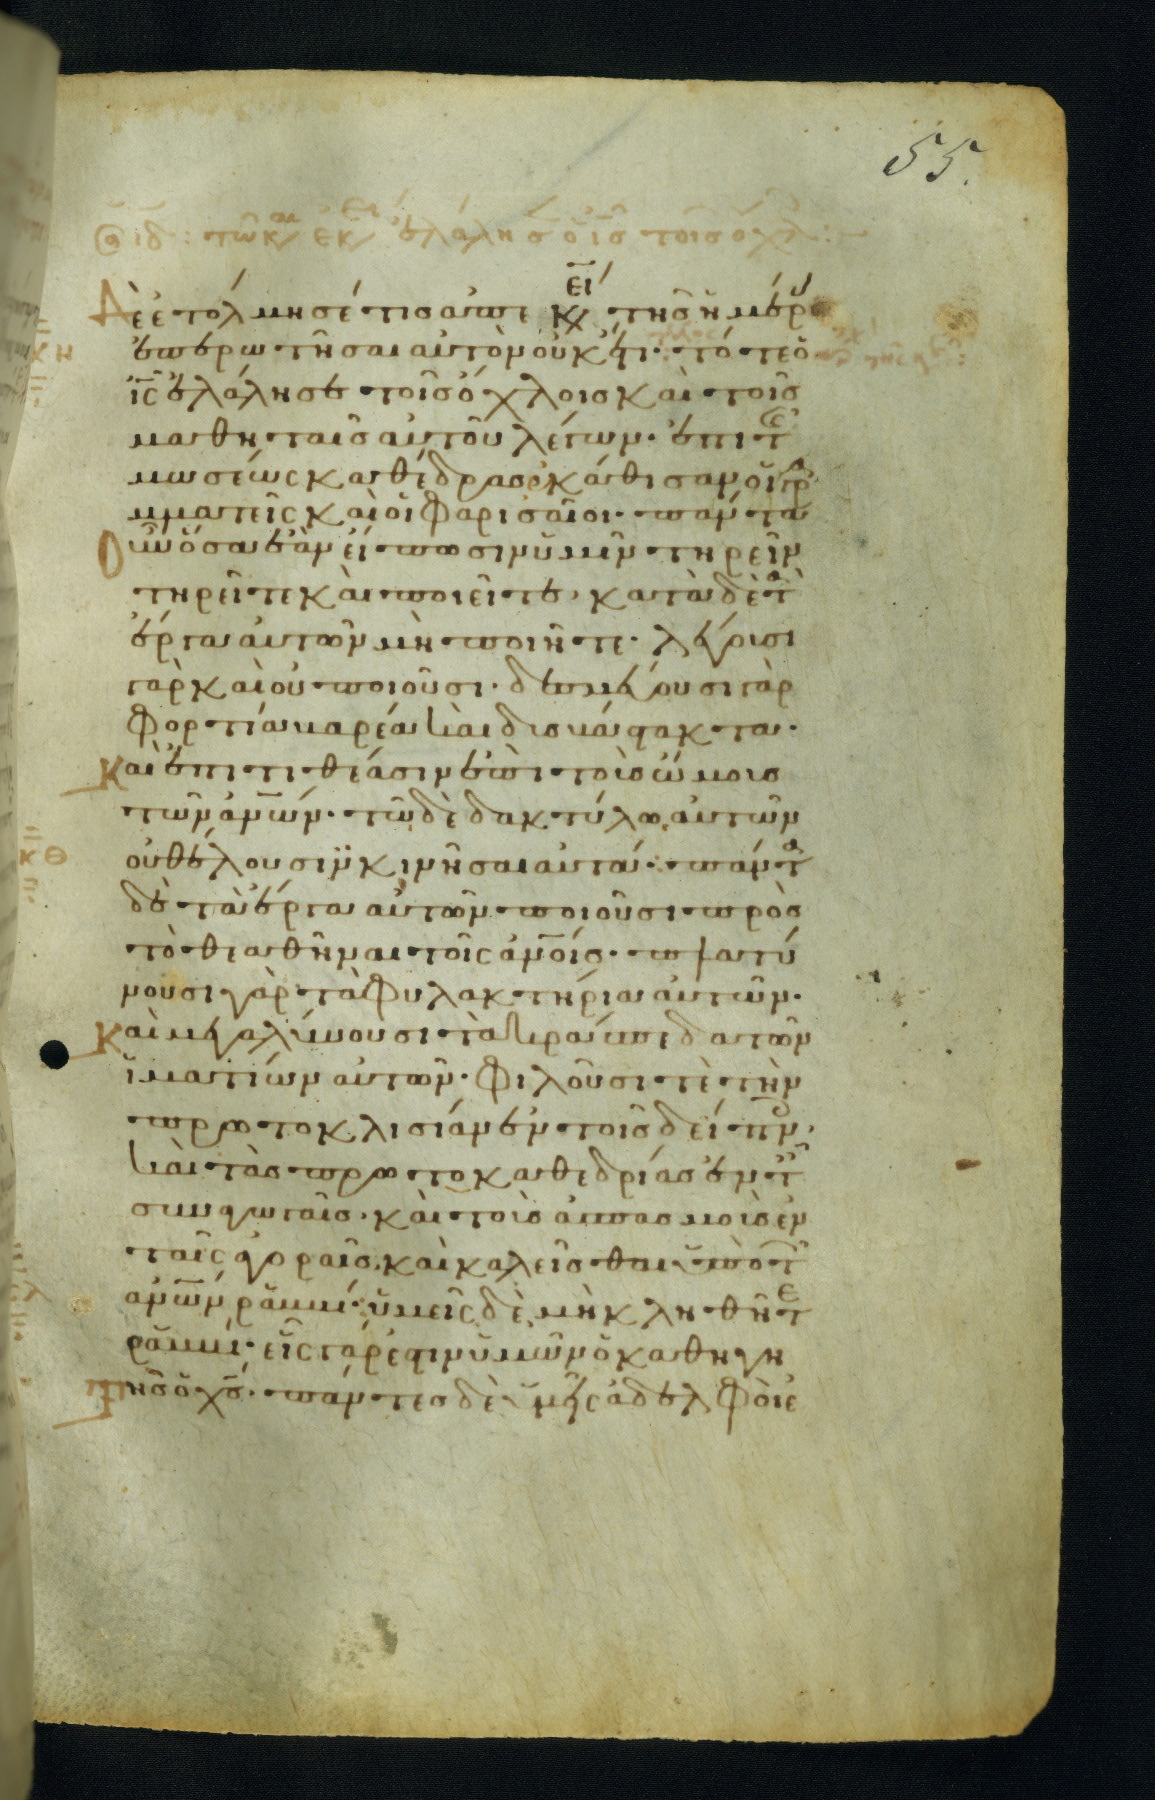 55.
τῶ κ, ἐκ, ἐλάλησ ὁ ισ τοῖσ ὄχλ:
Δὲ ἐτόλμησέ τισ ἀπ ἐκεί τῆσ ἡμέρ
ἐπερωτῆσαι αὐτὸν οὐκέτι· τότε ὁ
ις ἐλάλησε τοῖσ ὄχλοισ καὶ τοῖσ
μαθηταῖσ αὐτοῦ λέγων· ἐπι τ
μωσέως καθέδρασ ἐκάθισαν οἱ γρ
μματεῖς καὶ οἱ φαρισαῖοι· πάντα
Οὖν ὅσα ἐὰν εἴπωσιν ὑμῖν τηρεῖν
τηρεῖτε καὶ ποιεῖτε· κατὰ δὲ τὰ
ἔργα αὐτῶν μὴ ποιῆτε· λέγουσι
γὰρ καὶ οὐ ποιοῦσι· δεσμεύουσι γὰρ
φορτία βαρέα καὶ δυσβάστακτα·
Καὶ ἐπιτιθέασιν ἐπὶ τοὺσ ὤμουσ
τῶν ἀνων· τῶ δὲ δακτύλω αὐτῶν
οὐ θέλουσιν κινῆσαι αὐτά· πάντα
δὲ τὰ ἔργα αὐτῶν ποιοῦσι πρὸσ
τὸ θεαθῆναι τοῖς ἀνοίσ· πλατύ
νουσι γὰρ τὰ φυλακτήρια αὐτῶν·
Καὶ μεγαλύνουσι τὰ κράσπεδα τῶν
ἱματίων αὐτῶν· φιλοῦσι τὲ τὴν
πρωτοκλισίαν ἐν τοῖσ δείπν·
καὶ τὰσ πρωτοκαθεδρίασ ἐν τ
συναγωγαῖσ· καὶ τοὺσ ἀσπασμοὺσ ἐν
ταῖς ἀγοραῖσ· καὶ καλεῖσθαι ὑπὸ τ
ἀνων ραββί· ὑμεῖς δὲ μὴ κληθῆτε
ραββί· εἷς γάρ ἐστιν ὑμῶν ὁ καθηγη
Τῆσ ὁ χς· πάντεσ δὲ ὑμεῖς ἀδελφοί ἐ
κη
κθ